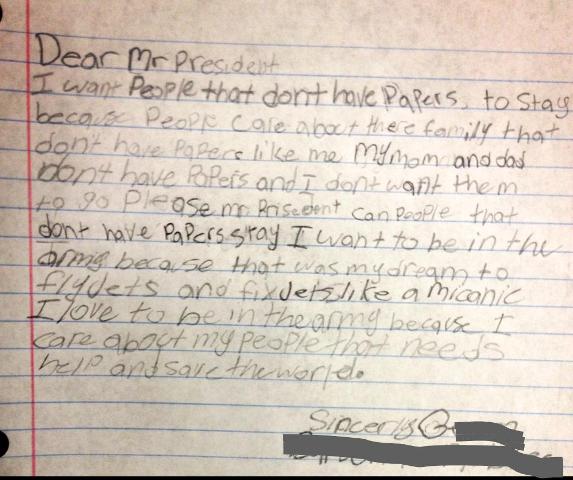 Dear Mr President
I want People that dont have Papers, to stay
because People Care about there family that
don't have Papers like me My mom and dad
Dont have PaPers and I dont want them
to go Please mr Prisedent can People that
dont have PaPers stay I want to be in the
army because that was my dream to
fly Jets and fix Jets like a micanic
I love to be in the army because I
care about my People that needs
help and save the world.
Sincerly